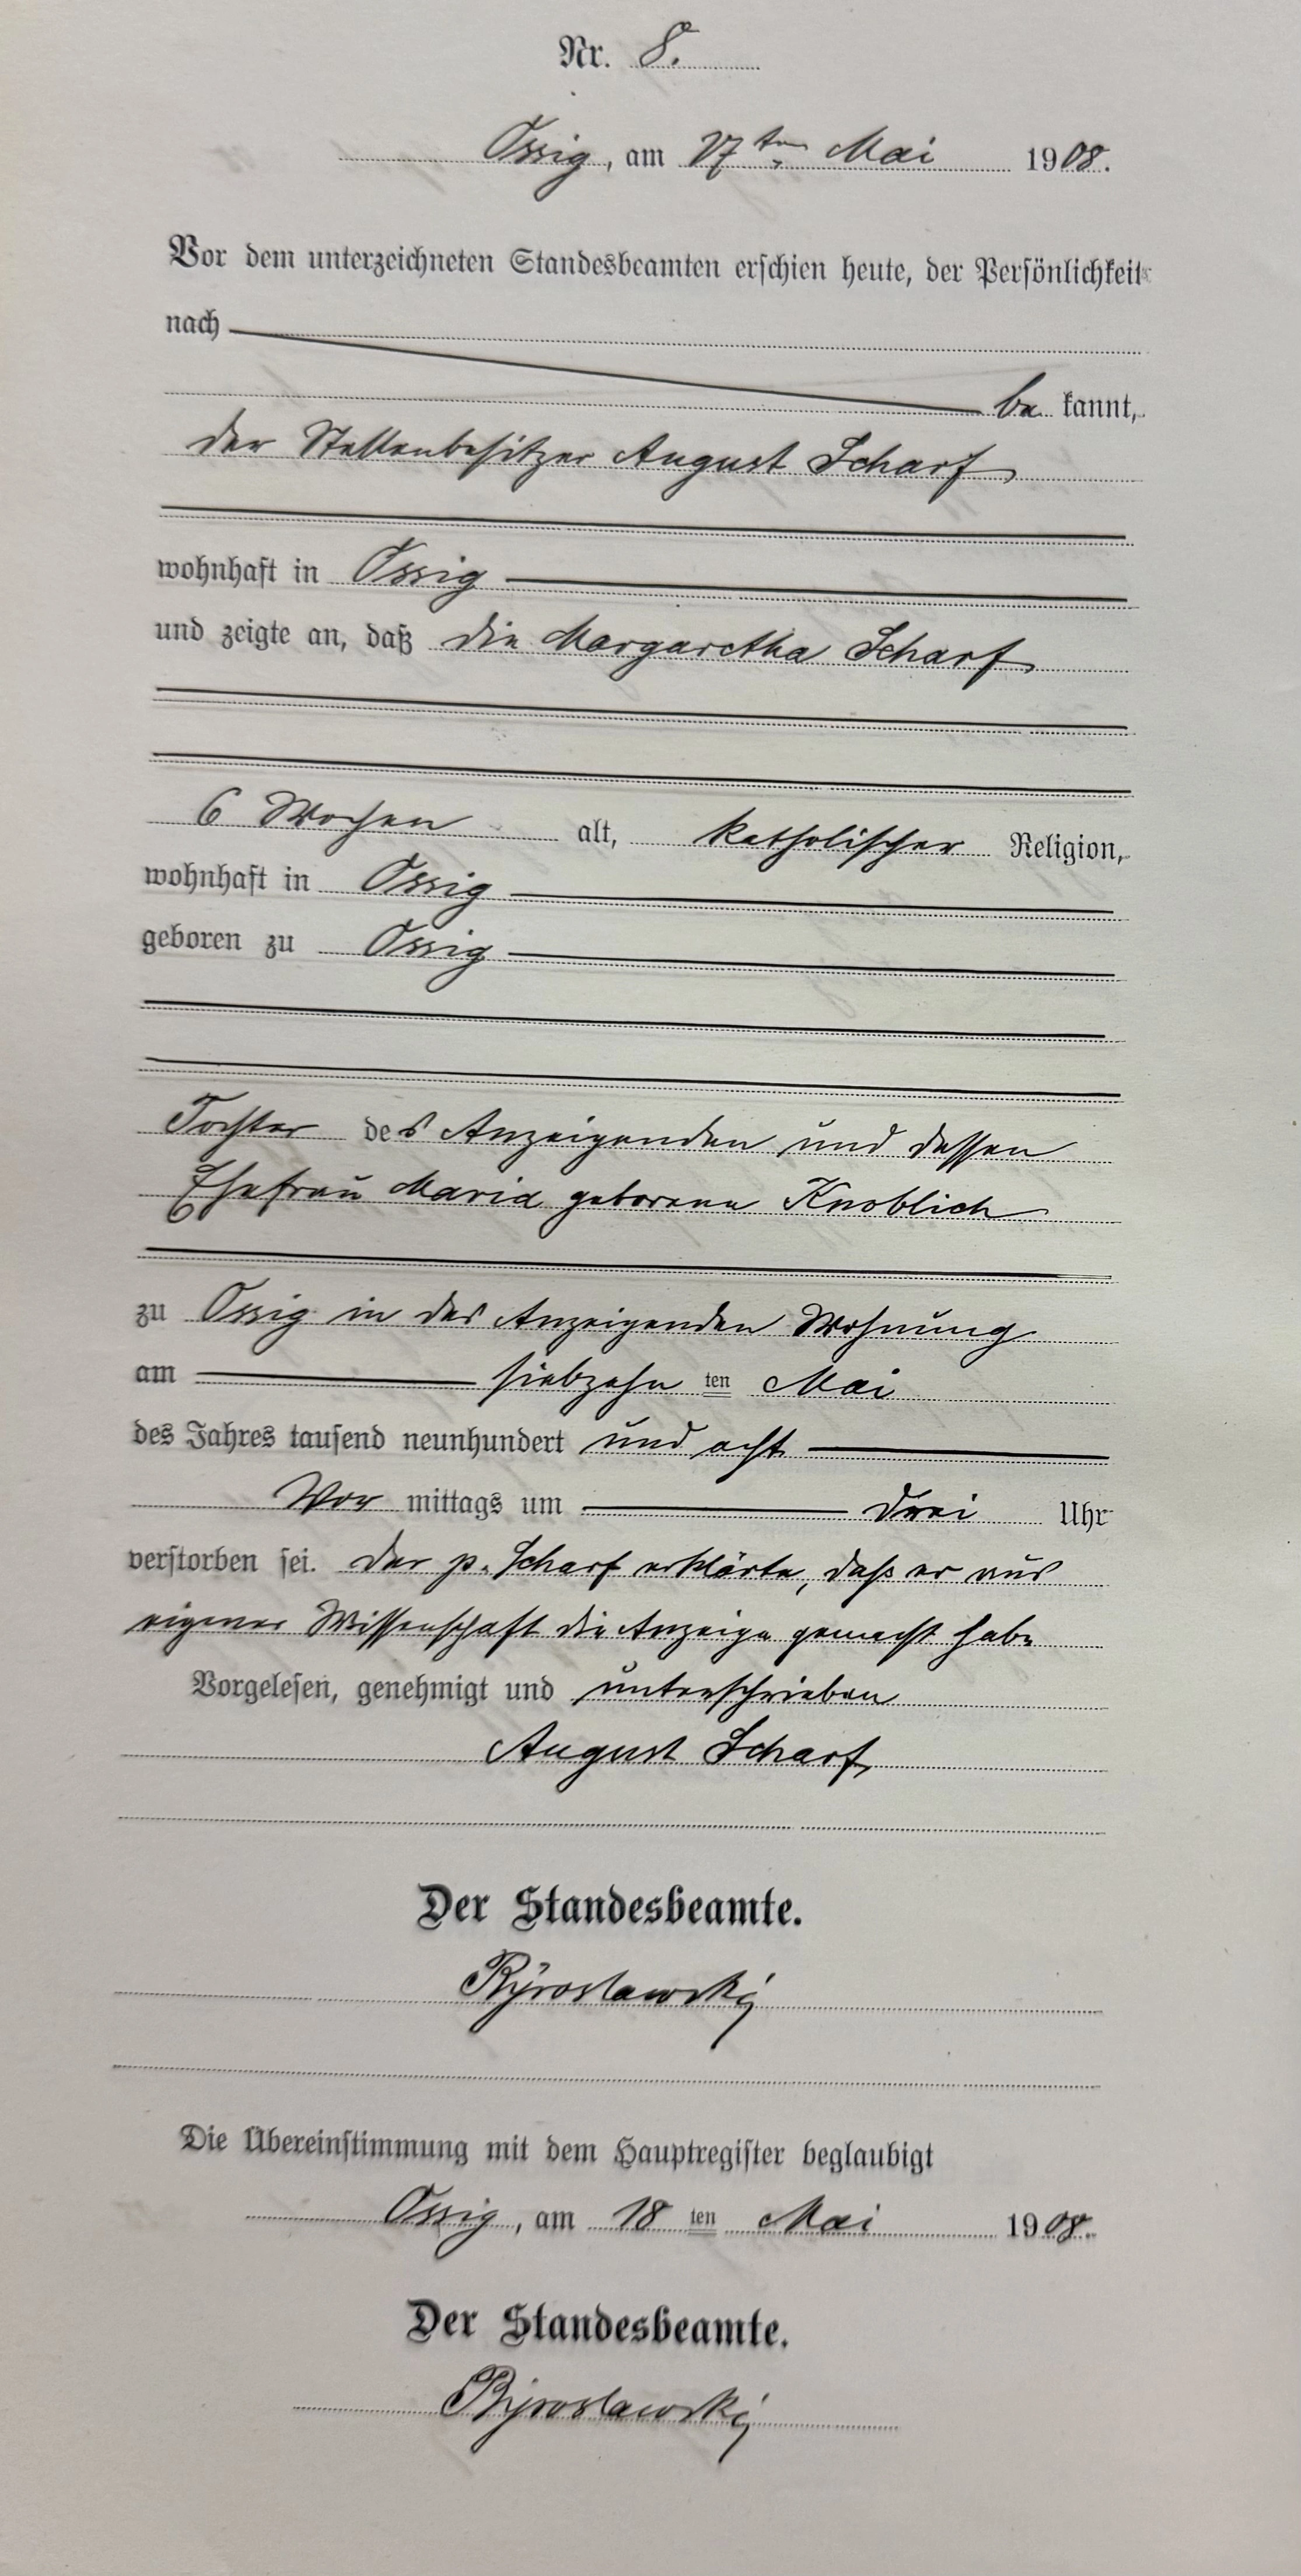 Nr. 8.
Ossig, am 17ten Mai 1908.
Vor dem unterzeichneten Standesbeamten erschien heute, der Persönlichkeit
nach
be kannt,
der Stellenbesitzer August Scharf
wohnhaft in Ossig
und zeigte an, daß die Margaretha Scharf
6 Wochen alt, katholischer Religion,
wohnhaft in Ossig
geboren zu Ossig
Tochter des Anzeigenden und dessen
Ehefrau Maria geborene Knoblich
zu Ossig in des Anzeigenden Wohnung
am siebzehn ten Mai
des Jahres tausend neunhundert und acht
Vor mittags um drei Uhr
verstorben sei. Der p. Scharf erklärte, daß er aus
eigener Wissenschaft die Anzeige gemacht habe
Vorgelesen, genehmigt und unterschrieben
August Scharf
Der Standesbeamte.
Die Übereinstimmung mit dem Hauptregister beglaubigt
Ossig, am 18 ten Mai 1908.
Der Standesbeamte.